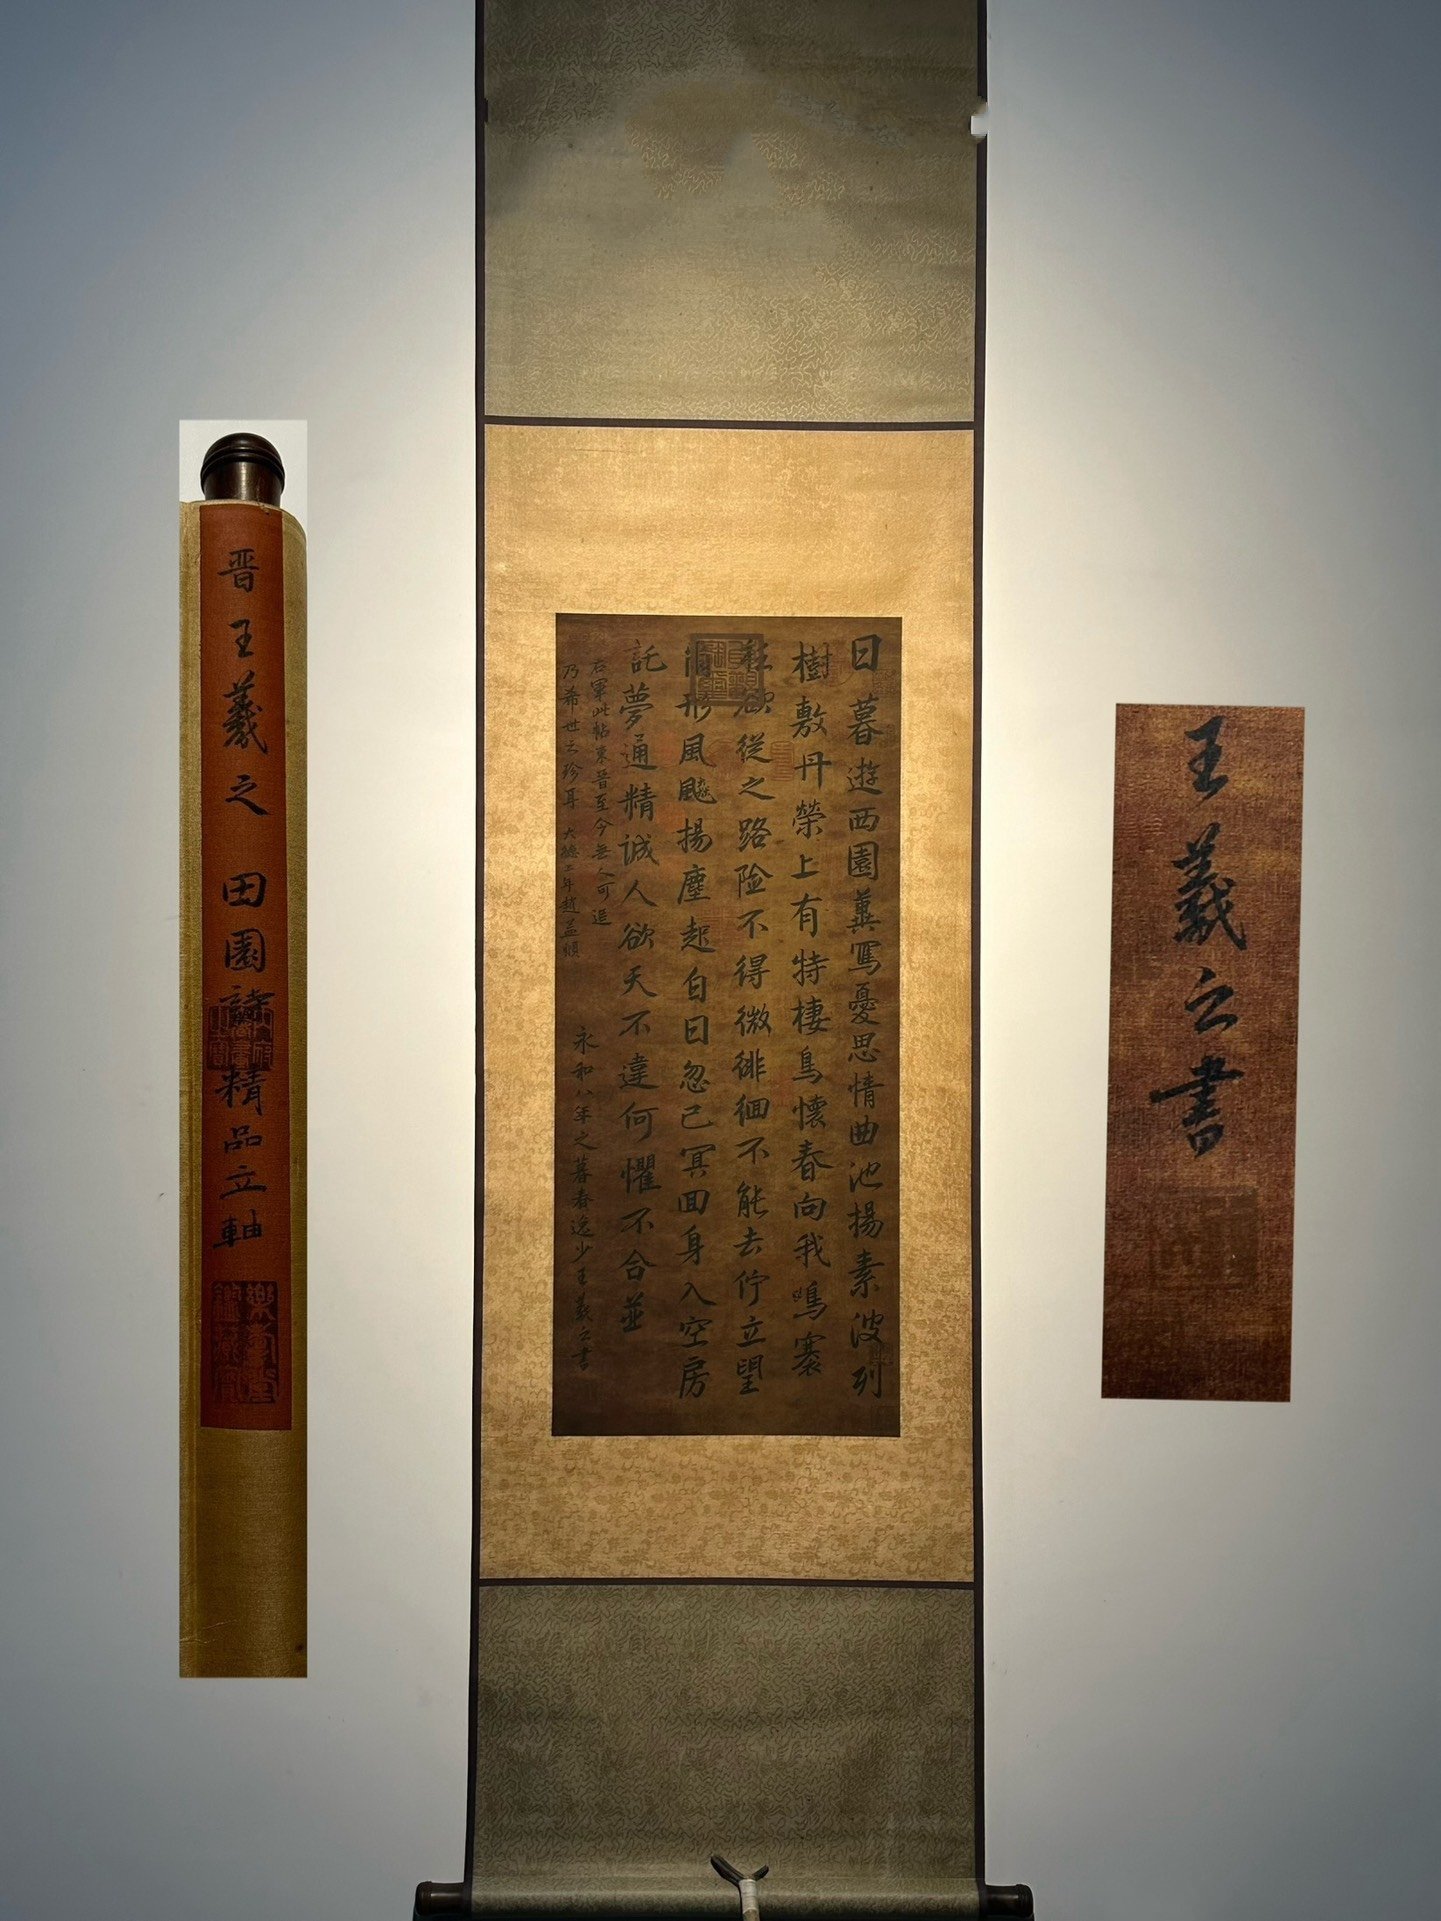 晋王羲之 田園詩精品立軸
日暮遊西園冀寫憂思情曲池揚素波列
樹敷丹榮上有特棲鳥懷春向我鳴褰
衽欲從之路险不得微徘徊不能去佇立望
形風飈揚塵起白日忽已冥回身入空房
託夢通精誠人欲天不違何懼不合並
永和八年之暮春逸少王羲之書
右軍此帖東晉至今無人可追
乃希世之珍耳 大德二年趙孟頫
王羲之書